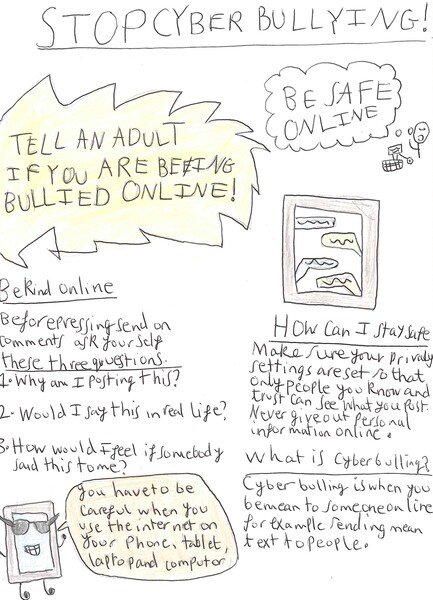 STOP CYBER BULLYING!
BE SAFE
ONLINE
TELL AN ADULT
IF YOU ARE BEING
BULLIED ONLINE!
Be Kind online
Before pressing send on
comments ask your self
these three questions.
1. Why am I posting this?
2. Would I say this in real life?
3. How would I feel if somebody
said this to me?
you have to be
careful when you
use the internet on
your phone, tablet,
laptop and computor
How Can I stay safe
Make sure your privacy
settings are set so that
only people you know and
trust can see what you post.
Never give out personal
information online.
What is Cyber bulling?
Cyber bulling is when you
be mean to someone online
for example sending mean
text to people.